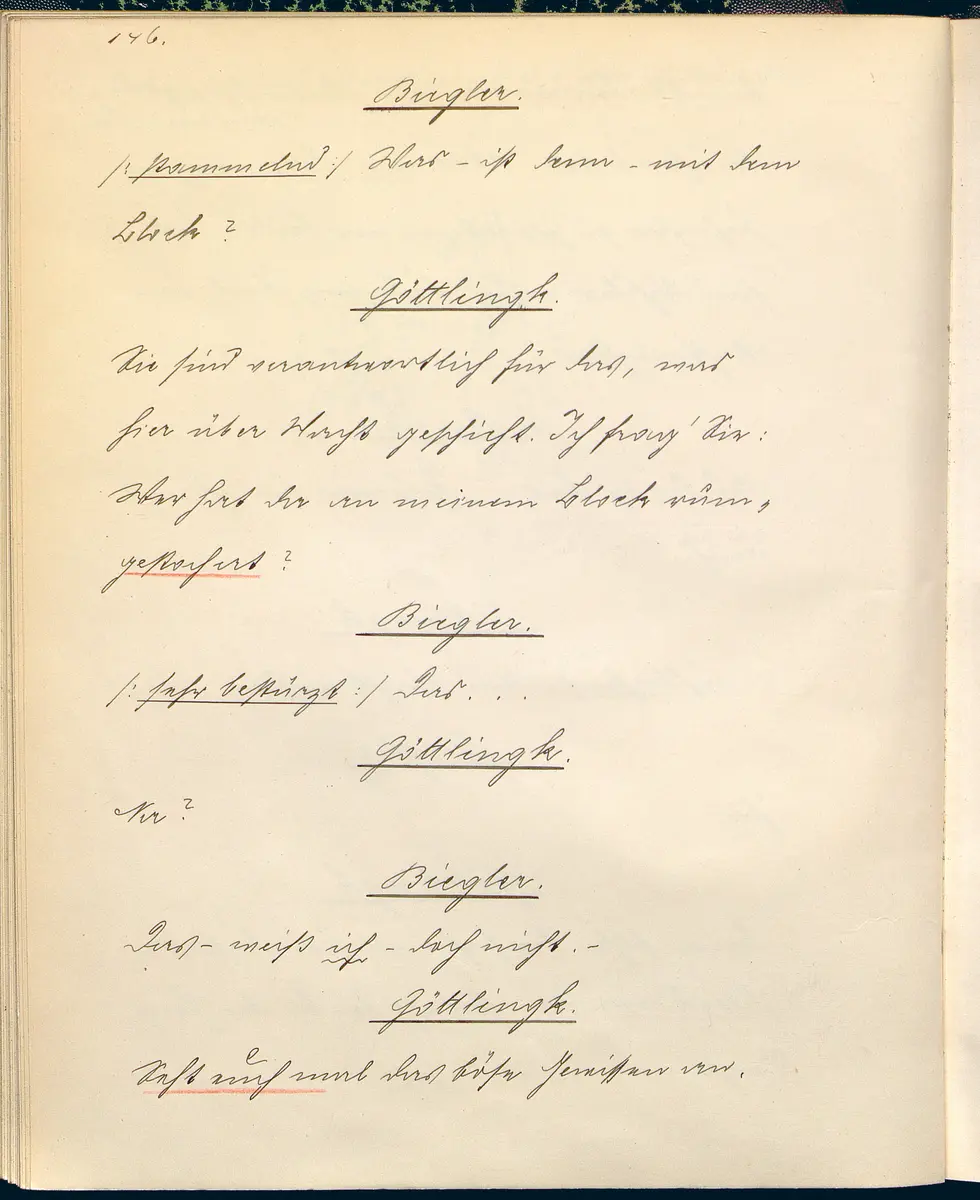 146.
Biegler.
/: stammelnd :/ Was – ist denn – mit dem
Block ?
Göttlingk.
Sie sind verantwortlich für das, was
hier über Nacht geschieht. Ich frag' Sie:
Wer hat da an meinem Block rum-
gestochert ?
Biegler.
/: sehr bestürzt :/ Das. . .
Göttlingk.
Na ?
Biegler.
Das – weiß ich – doch nicht. –
Göttlingk.
Seht euch mal das böse Gewissen an.